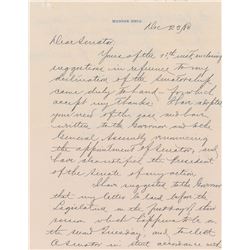 MUNROE HILL
Dec 23/10
Dear Senator,
Yours of the 19th inst enclosing
suggestions in reference to my
declination of the senatorship
came duly to hand — for which
accept my thanks. I have adopted
your view of the case and have
written to the Governor and
General Assembly renouncing
the appointment of Senator, and
have also notified the President
of the Senate of my action
I have suggested to the Governor
that my letter be laid before the
Legislature on the Tuesday of this
session which happens to be on
the second Tuesday and to elect
a Senator in strict accordance with